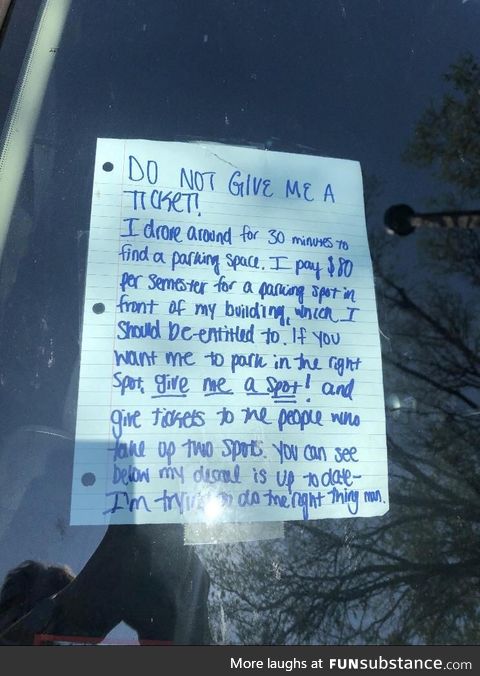 DO NOT GIVE ME A
TICKET!
I drove around for 30 minutes to
find a parking space. I pay $80
per semester for a parking spot in
front of my building, which I
should be entitled to. If you
want me to park in the right
spot, give me a spot! and
give tickets to the people who
take up two spots. You can see
below my decal is up to date-
I'm trying to do the right thing man.
More laughs at FUNsubstance.com